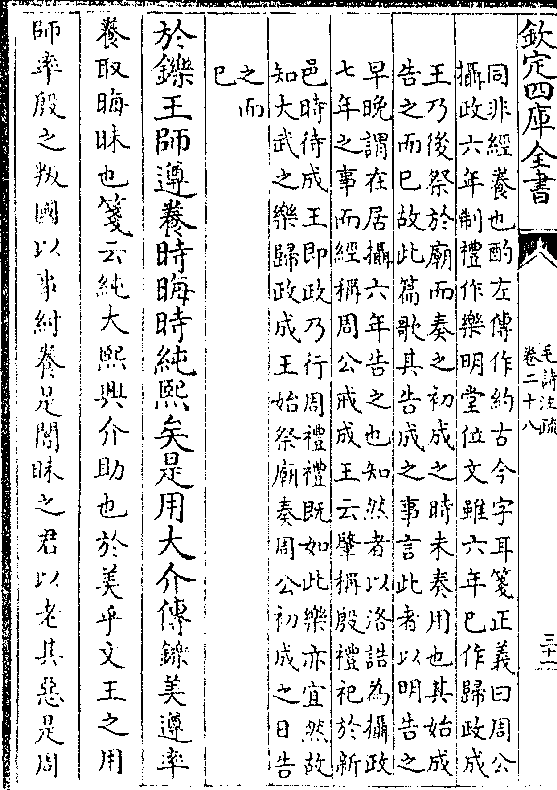 欽定四庫全書
毛詩注疏
卷二十八
三十二
同非經養也酌左傳作約古今字耳箋正義曰周公
攝政六年制禮作樂明堂位文雖六年已作歸政成
王乃後祭於廟而奏之初成之時未奏用也其始成
告之而已故此篇歌其告成之事言此者以明告之
早晚謂在居攝六年告之也知然者以洛誥為攝政
七年之事而經稱周公戒成王云肇稱殷禮祀於新
邑時待成王即政乃行周禮禮既如此樂亦宜然故
知大武之樂歸政成王始祭廟奏周公初成之日告
之而
已
於鑠王師遵養時晦時純熙矣是用大介傳鑠美遵率
養取晦昧也箋云純大熙興介助也於美乎文王之用
師率殷之叛國以事紂養是闇昧之君以老其惡是周